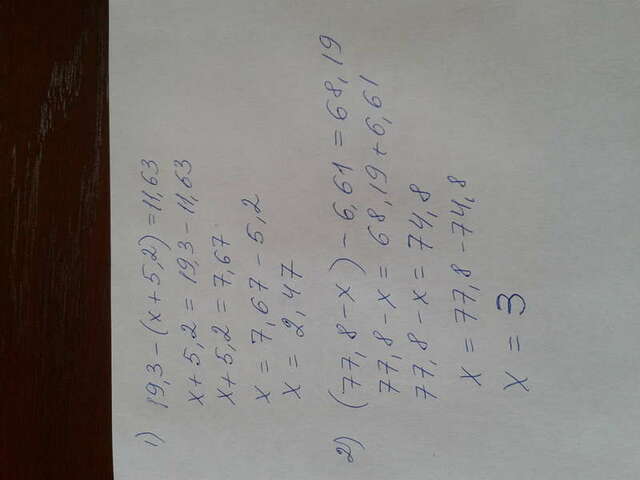 1) 19,3 - (x+5,2) = 11,63
x+5,2 = 19,3 - 11,63
x+5,2 = 7,67
x = 7,67 - 5,2
x = 2,47
2) (77,8 - x) - 6,61 = 68,19
77,8 - x = 68,19 + 6,61
77,8 - x = 74,8
x = 77,8 - 74,8
x = 3